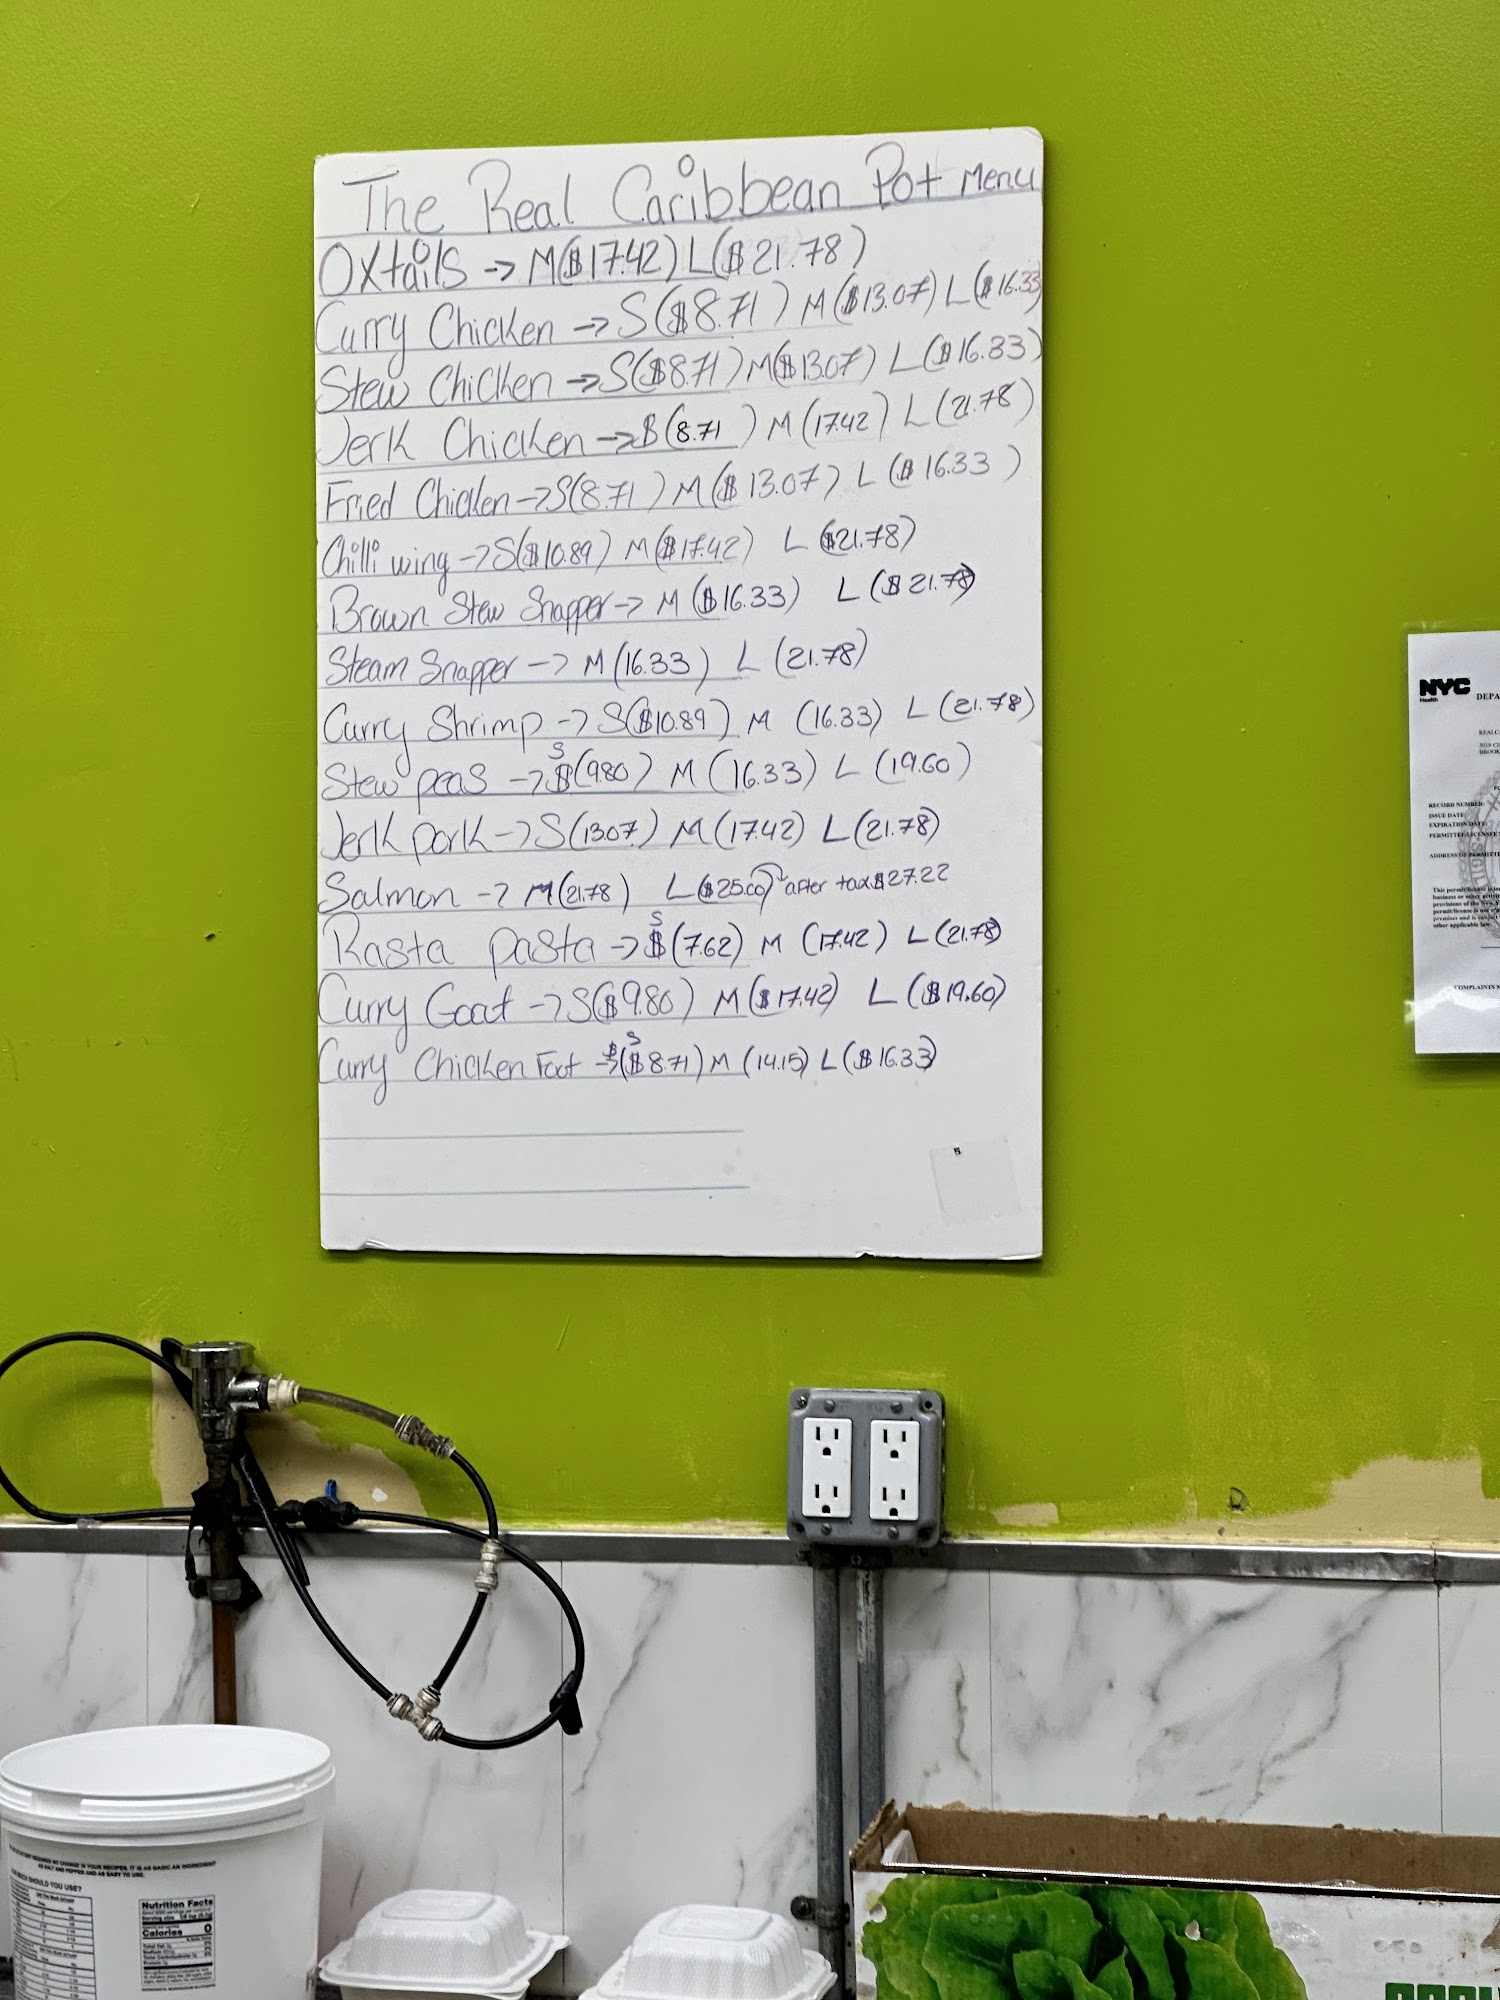 The Real Caribbean Pot Menu
Oxtails -> M($17.42) L($21.78)
Curry Chicken -> S($8.71) M($13.07) L($16.33)
Stew Chicken -> S($8.71) M($13.07) L($16.33)
Jerk Chicken -> $(8.71) M(17.42) L(21.78)
Fried Chicken -> S(8.71) M($13.07) L($16.33)
Chilli wing -> S($10.89) M($17.42) L($21.78)
Brown Stew Snapper -> M($16.33) L($21.78)
Steam Snapper -> M(16.33) L(21.78)
Curry Shrimp -> S($10.89) M (16.33) L (21.78)
S
Stew peas -> $(9.80) M (16.33) L (19.60)
Jerk pork -> S(13.07) M(17.42) L(21.78)
Salmon -> M(21.78) L($25.00) after tax $27.22
S
Rasta pasta -> $(7.62) M (17.42) L(21.78)
Curry Goat -> S($9.80) M($17.42) L($19.60)
S
Curry Chicken Foot -> ($8.71) M (14.15) L($16.33)
NYC
Health
DEPA
RECORD NUMBER:
ISSUE DATE:
EXPIRATION DATE:
COMPLAINTS
AS SALT AND PEPPER AND AS EASY TO USE.
SHOULD YOU USE?
Nutrition Facts
Calories 0